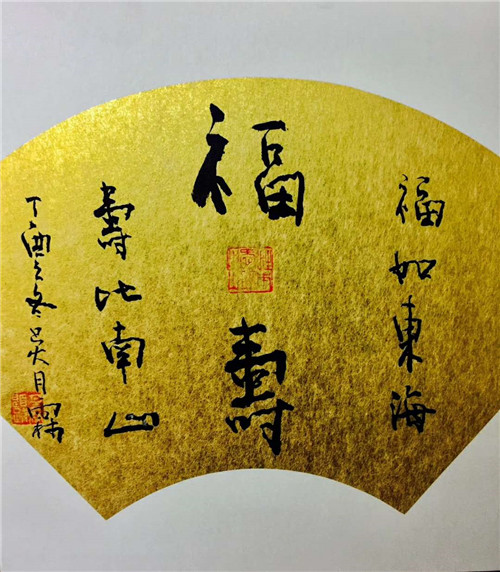 福如東海
福壽
壽比南山
丁酉之冬吴月霖